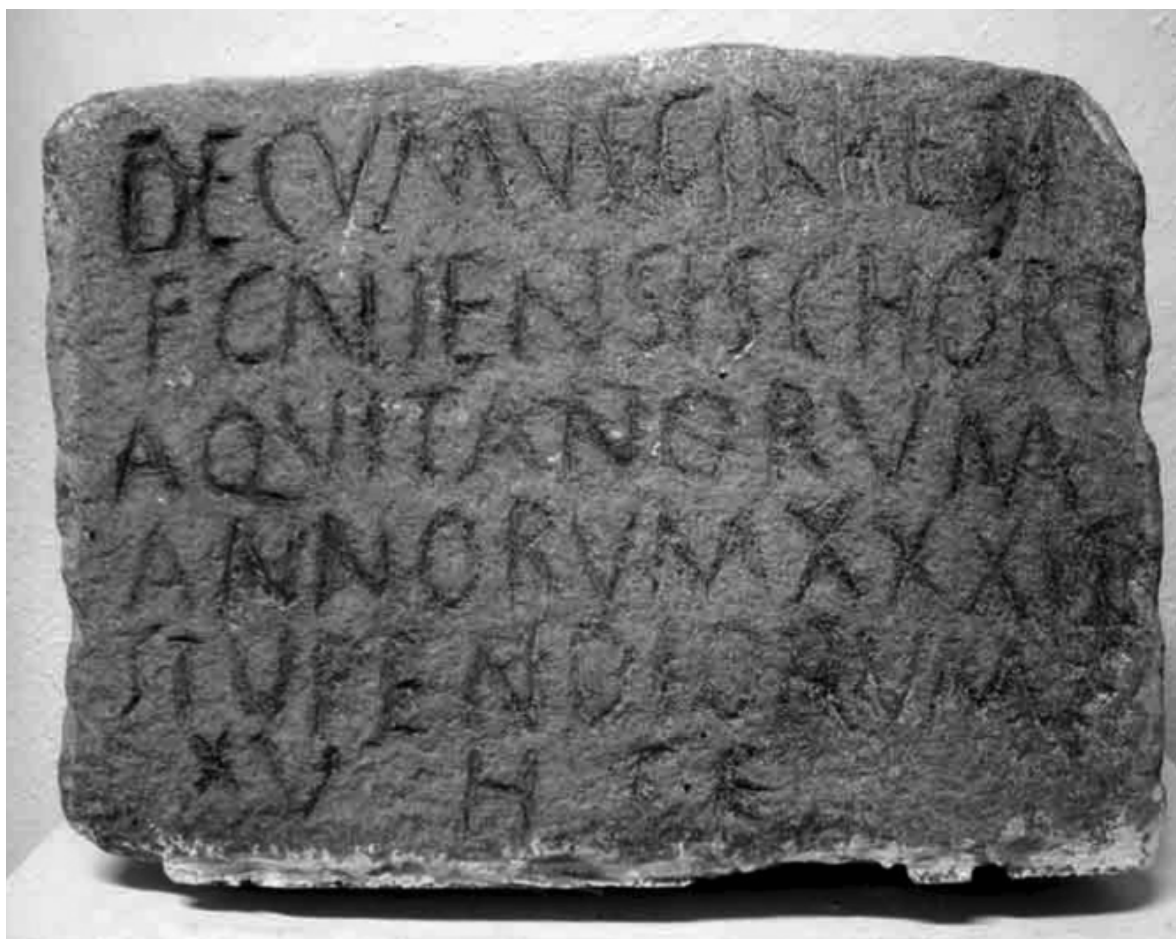 DECVMVS
F CNUENSIS CHORT
AQVITANORVM
ANNORVM XXXII
STUPENDIORVM
XV H